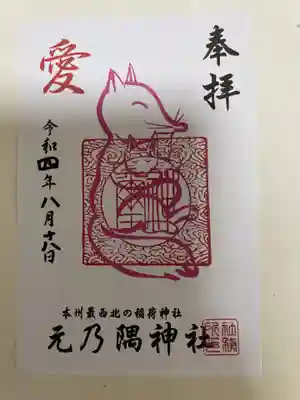 奉拝
愛
令和四年八月十八日
本州最西北の稲荷神社
元乃隅神社